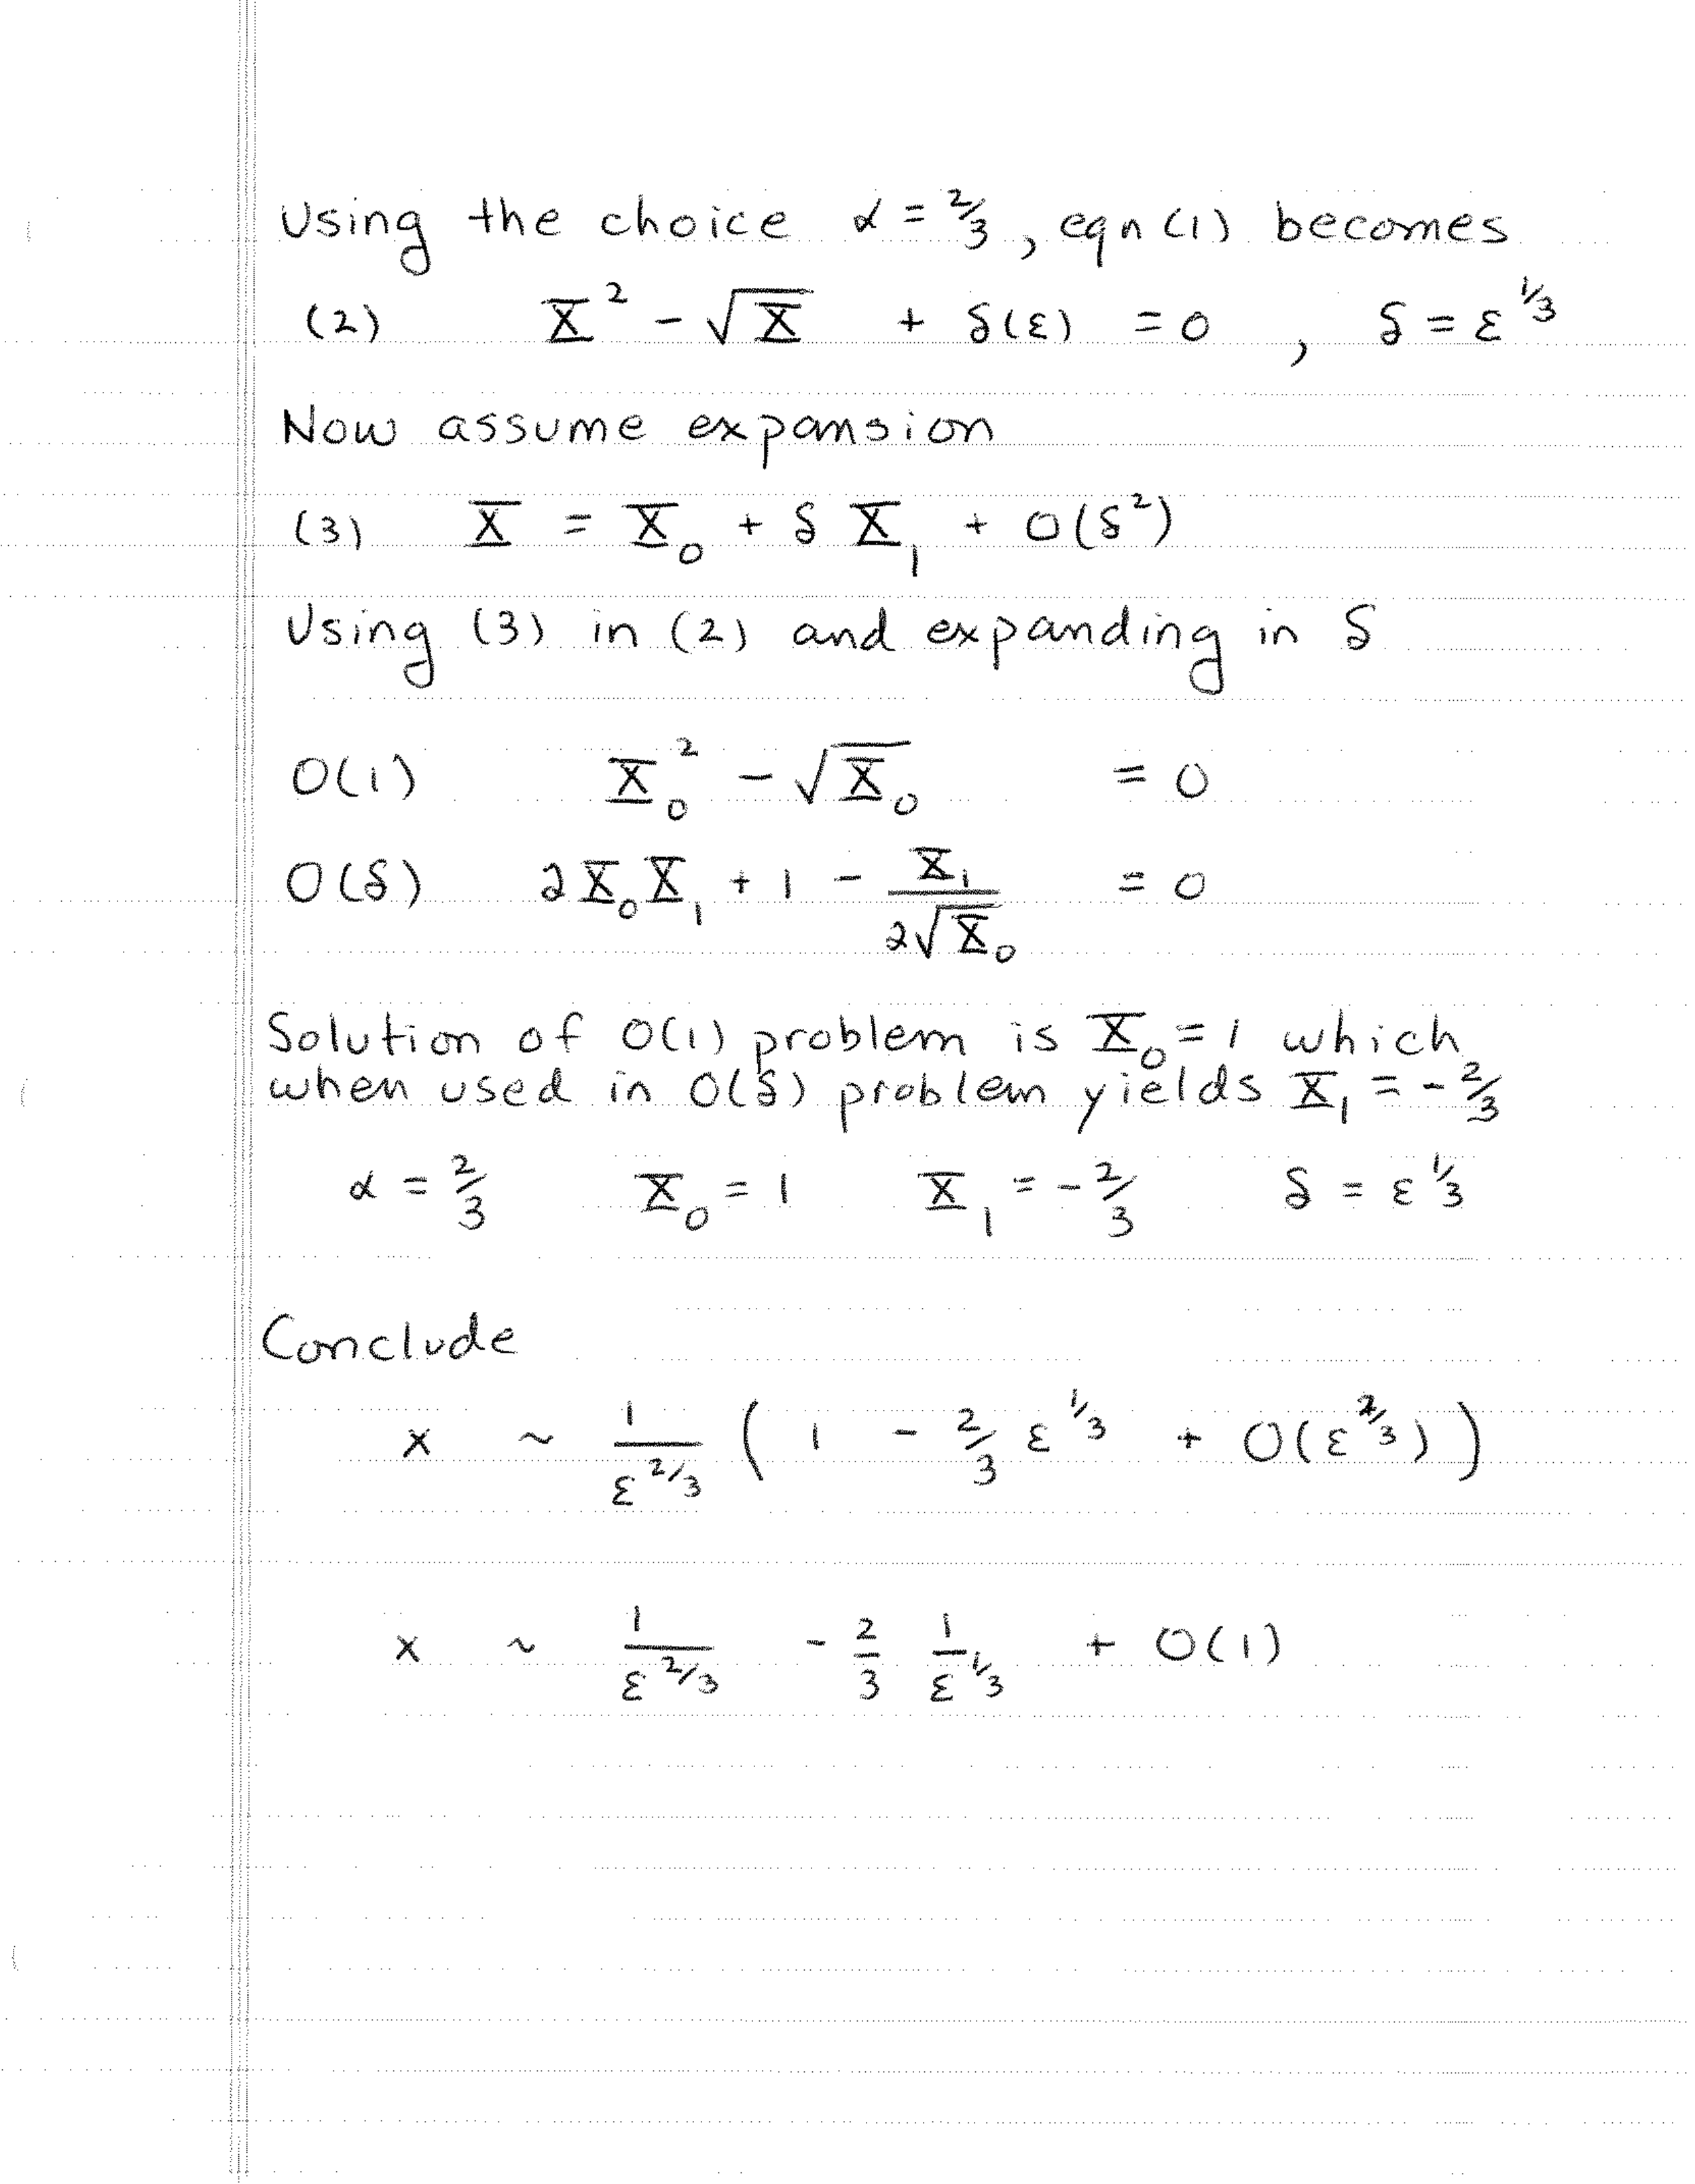 Using the choice α = 2/3, eqn (1) becomes
(2) X² - √X + δ(ε) = 0 , δ = ε^(1/3)
Now assume expansion
(3) X = X₀ + δ X₁ + O(δ²)
Using (3) in (2) and expanding in δ
O(1) X₀² - √X₀ = 0
O(δ) 2X₀X₁ + 1 - X₁/(2√X₀) = 0
Solution of O(1) problem is X₀ = 1 which
when used in O(δ) problem yields X₁ = -2/3
α = 2/3 X₀ = 1 X₁ = -2/3 δ = ε^(1/3)
Conclude
x ~ 1/ε^(2/3) ( 1 - 2/3 ε^(1/3) + O(ε^(2/3)) )
x ~ 1/ε^(2/3) - 2/3 1/ε^(1/3) + O(1)